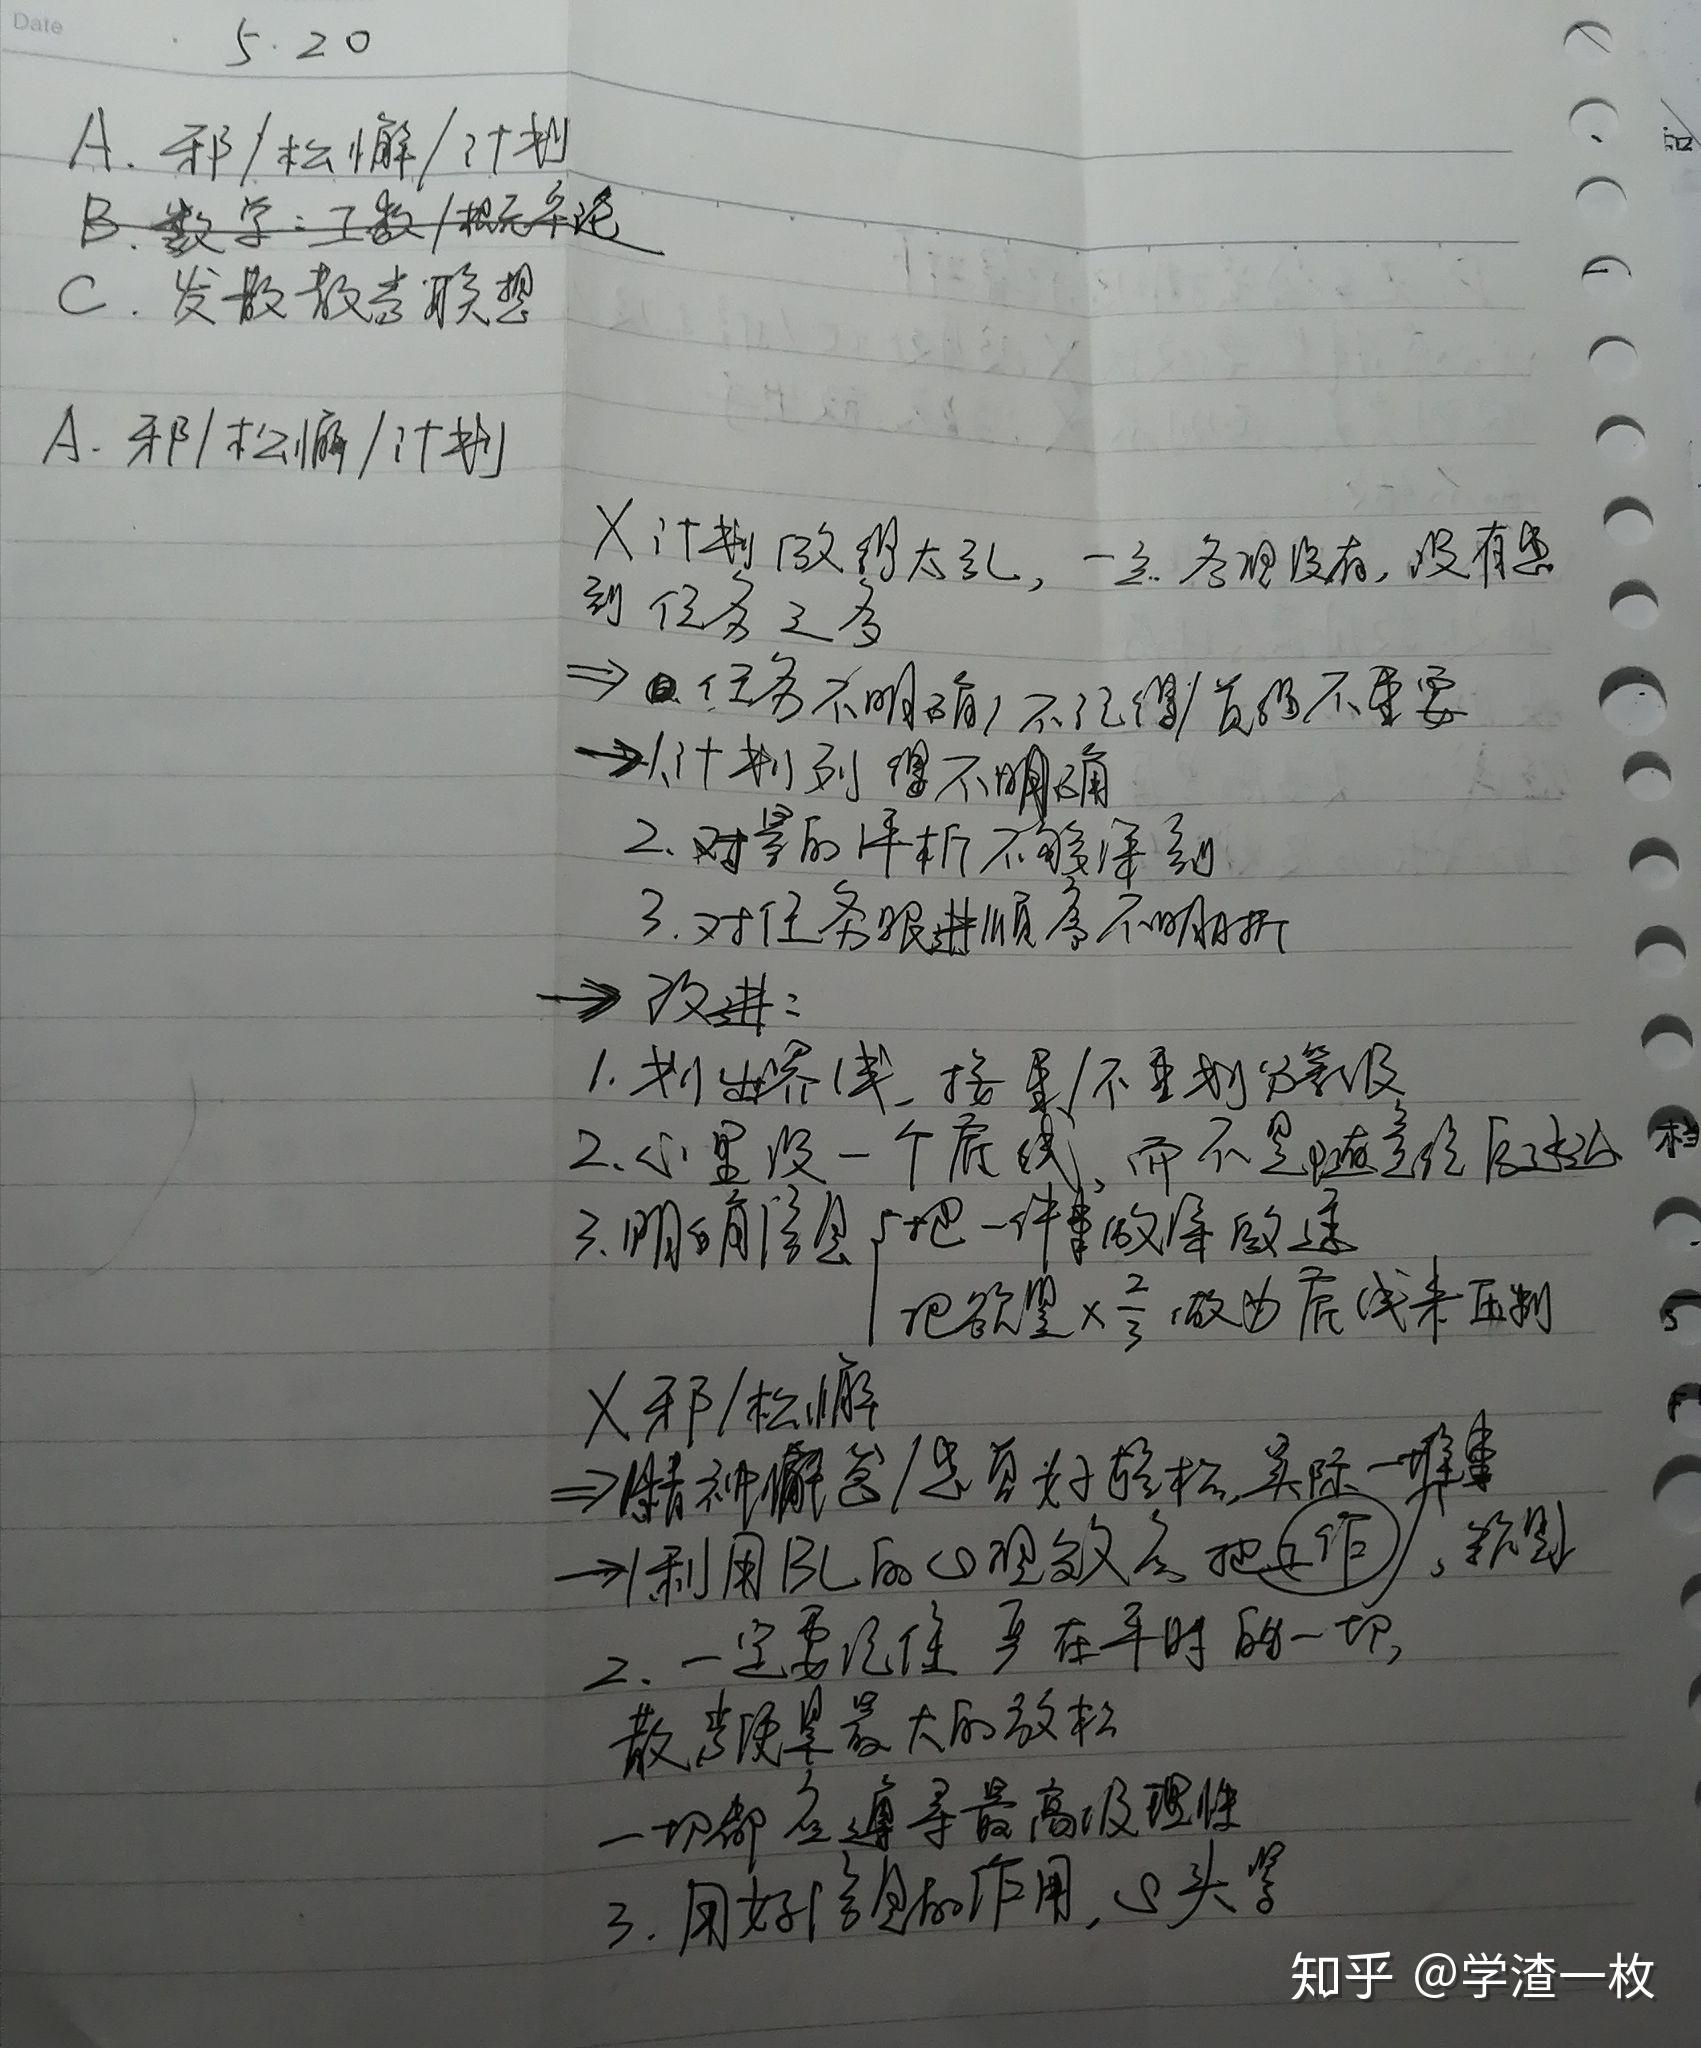 Date
5.20
A. 邪/松懈/计划
B. 数学:工数/概率论
C. 发散散步联想
A. 邪/松懈/计划
X 计划做得太乱,一立 没有,没有想
到任务之多
⇒ 任务不明确,不记得/首 不重要
→1.计划列得不明确
2.对 的评析不够深刻
3.对任务跟进顺序不明晰
→改进:
1.划出界线,按重/不重划分等级
2.心里设一个底线,而不是随意往后
3.明确信息 把一件事做深做
把欲望×2/3 做为底线来
X 邪/松懈
⇒1精神懈怠/总自好轻松,实际一堆事
→1利用BL的心理效应 把工作
2.一定要记住 在平时的一切,
散步便是最大的放松
一切都应遵寻最高级理性
3.用好信息的作用,心头
知乎 @学渣一枚